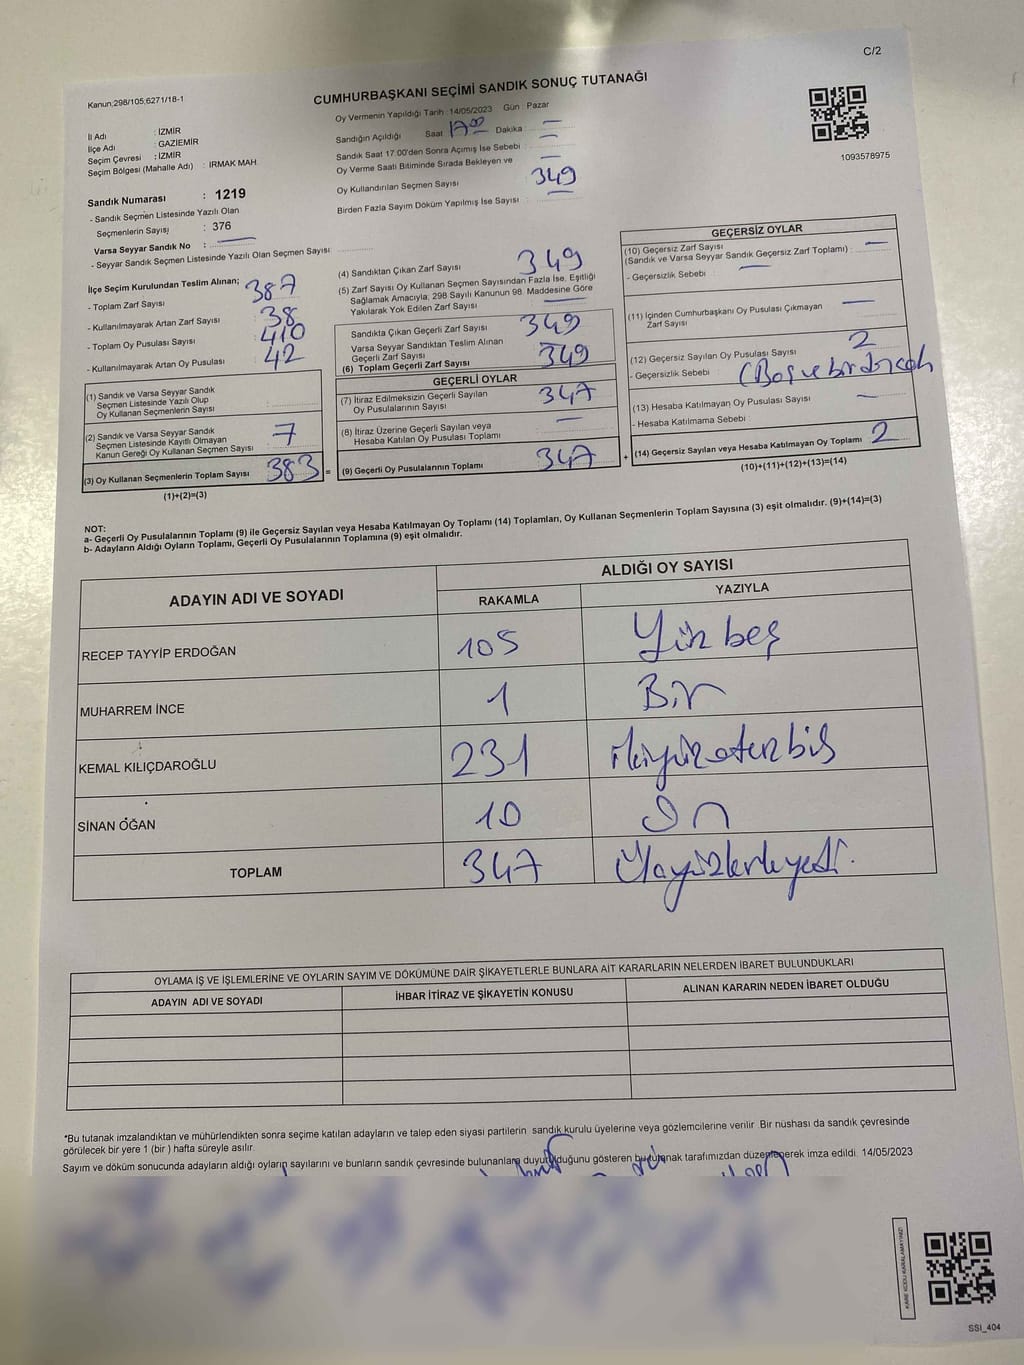 C/2
Kanun;298/105;6271/18-1
CUMHURBAŞKANI SEÇİMİ SANDIK SONUÇ TUTANAĞI
Oy Vermenin Yapıldığı Tarih : 14/05/2023 Gün : Pazar
İl Adı : İZMİR
İlçe Adı : GAZİEMİR
Seçim Çevresi : İZMİR
Seçim Bölgesi (Mahalle Adı) : IRMAK MAH.
Sandığın Açıldığı Saat 17:00 Dakika : —
Sandık Saat 17:00'den Sonra Açımış İse Sebebi : —
Oy Verme Saati Bitiminde Sırada Bekleyen ve —
Oy Kullandırılan Seçmen Sayısı 349
Birden Fazla Sayım Döküm Yapılmış İse Sayısı : —
1093578975
Sandık Numarası : 1219
- Sandık Seçmen Listesinde Yazılı Olan
Seçmenlerin Sayısı : 376
Varsa Seyyar Sandık No : —
- Seyyar Sandık Seçmen Listesinde Yazılı Olan Seçmen Sayısı :
İlçe Seçim Kurulundan Teslim Alınan;
- Toplam Zarf Sayısı 387
- Kullanılmayarak Artan Zarf Sayısı 38
- Toplam Oy Pusulası Sayısı 410
- Kullanılmayarak Artan Oy Pusulası 42
(1) Sandık ve Varsa Seyyar Sandık
Seçmen Listesinde Yazılı Olup
Oy Kullanan Seçmenlerin Sayısı
(2) Sandık ve Varsa Seyyar Sandık
Seçmen Listesinde Kayıtlı Olmayan
Kanun Gereği Oy Kullanan Seçmen Sayısı 7
(3) Oy Kullanan Seçmenlerin Toplam Sayısı 383 =
(1)+(2)=(3)
(4) Sandıktan Çıkan Zarf Sayısı 349
(5) Zarf Sayısı Oy Kullanan Seçmen Sayısından Fazla İse, Eşitliği
Sağlamak Amacıyla; 298 Sayılı Kanunun 98. Maddesine Göre
Yakılarak Yok Edilen Zarf Sayısı —
Sandıkta Çıkan Geçerli Zarf Sayısı 349
Varsa Seyyar Sandıktan Teslim Alınan
Geçerli Zarf Sayısı
(6) Toplam Geçerli Zarf Sayısı 349
GEÇERLİ OYLAR
(7) İtiraz Edilmeksizin Geçerli Sayılan
Oy Pusulalarının Sayısı 347
(8) İtiraz Üzerine Geçerli Sayılan veya
Hesaba Katılan Oy Pusulası Toplamı —
(9) Geçerli Oy Pusulalarının Toplamı 347 +
GEÇERSİZ OYLAR
(10) Geçersiz Zarf Sayısı
(Sandık ve Varsa Seyyar Sandık Geçersiz Zarf Toplamı) : —
- Geçersizlik Sebebi : —
(11) İçinden Cumhurbaşkanı Oy Pusulası Çıkmayan
Zarf Sayısı —
(12) Geçersiz Sayılan Oy Pusulası Sayısı 2
- Geçersizlik Sebebi : (Boş ve bir
(13) Hesaba Katılmayan Oy Pusulası Sayısı —
- Hesaba Katılmama Sebebi :
(14) Geçersiz Sayılan veya Hesaba Katılmayan Oy Toplamı 2
(10)+(11)+(12)+(13)=(14)
NOT:
a- Geçerli Oy Pusulalarının Toplamı (9) ile Geçersiz Sayılan veya Hesaba Katılmayan Oy Toplamı (14) Toplamları, Oy Kullanan Seçmenlerin Toplam Sayısına (3) eşit olmalıdır. (9)+(14)=(3)
b- Adayların Aldığı Oyların Toplamı, Geçerli Oy Pusulalarının Toplamına (9) eşit olmalıdır.
ADAYIN ADI VE SOYADI
ALDIĞI OY SAYISI
RAKAMLA YAZIYLA
RECEP TAYYİP ERDOĞAN 105 Yüz beş
MUHARREM İNCE 1 Bir
KEMAL KILIÇDAROĞLU 231 ikiyüzotuzbir
SİNAN OĞAN 10 On
TOPLAM 347
OYLAMA İŞ VE İŞLEMLERİNE VE OYLARIN SAYIM VE DÖKÜMÜNE DAİR ŞİKAYETLERLE BUNLARA AİT KARARLARIN NELERDEN İBARET BULUNDUKLARI
ADAYIN ADI VE SOYADI İHBAR İTİRAZ VE ŞİKAYETİN KONUSU ALINAN KARARIN NEDEN İBARET OLDUĞU
*Bu tutanak imzalandıktan ve mühürlendikten sonra seçime katılan adayların ve talep eden siyasi partilerin sandık kurulu üyelerine veya gözlemcilerine verilir. Bir nüshası da sandık çevresinde
görülecek bir yere 1 (bir ) hafta süreyle asılır.
Sayım ve döküm sonucunda adayların aldığı oyların sayılarını ve bunların sandık çevresinde bulunanlara duyurulduğunu gösteren bu tutanak tarafımızdan düzenlenerek imza edildi. 14/05/2023
KARE KODU KARALAMAYINIZ!
SSI_404